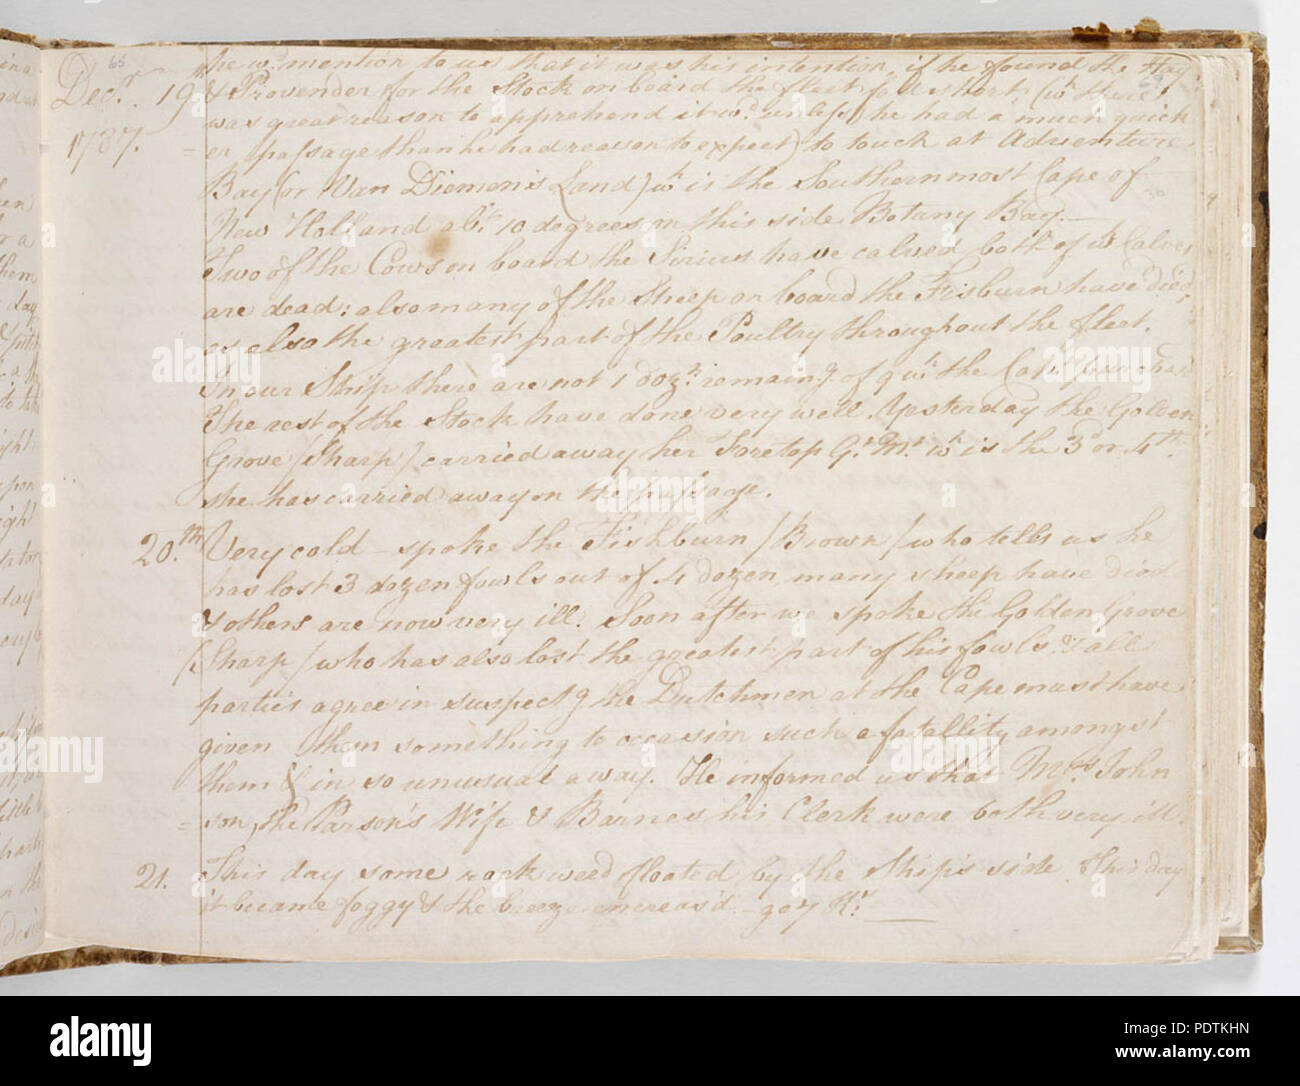 65
Decr. 19th he wd. mention to us that it was his intention, if he found the Hay
1787. & Provender for the Stock on board the fleet fall short, (wh. there
was great reason to apprehend it wd. unless he had a much quick
=er passage than he had reason to expect) to touch at Adventure
Bay (or Van Diemen's Land) wh. is the Southernmost Cape of
New Holland abt. 10 degrees on this side Botany Bay.—
Two of the Cows on board the Sirius have calved both of wh. Calves
are dead; also many of the Sheep on board the Fishburn have died,
as also the greatest part of the Poultry throughout the fleet.
In our Ship there are not 1 dozn. remaing. of 9 wh. the Capt. purchas'd
The rest of the Stock have done very well. Yesterday the Golden
Grove (Sharp) carried away her Foretop Gt. Mt. wh. is the 3d or 4th
she has carried away on the passage.
20.th Very cold — spoke the Fishburn /Brown/ who tells us he
has lost 3 dozen fowls out of 4 dozen, many sheep have died
& others are now very ill. Soon after we spoke the Golden Grove
/Sharp/ who has also lost the greatest part of his fowls, & all
parties agree in suspectg the Dutchmen at the Cape must have
given them something to occasion such a fatallity amongst
them & in so unusual a way. He informed us that Mrs. John
=son, the Parson's Wife & Barnes his Clerk were both very ill.
21. This day some rock weed floated by the Ship's side. This day
it became foggy & the breeze increas'd — go 7 Kts.
alamy
alamy
alamy
Image ID: PDTKHN
www.alamy.com